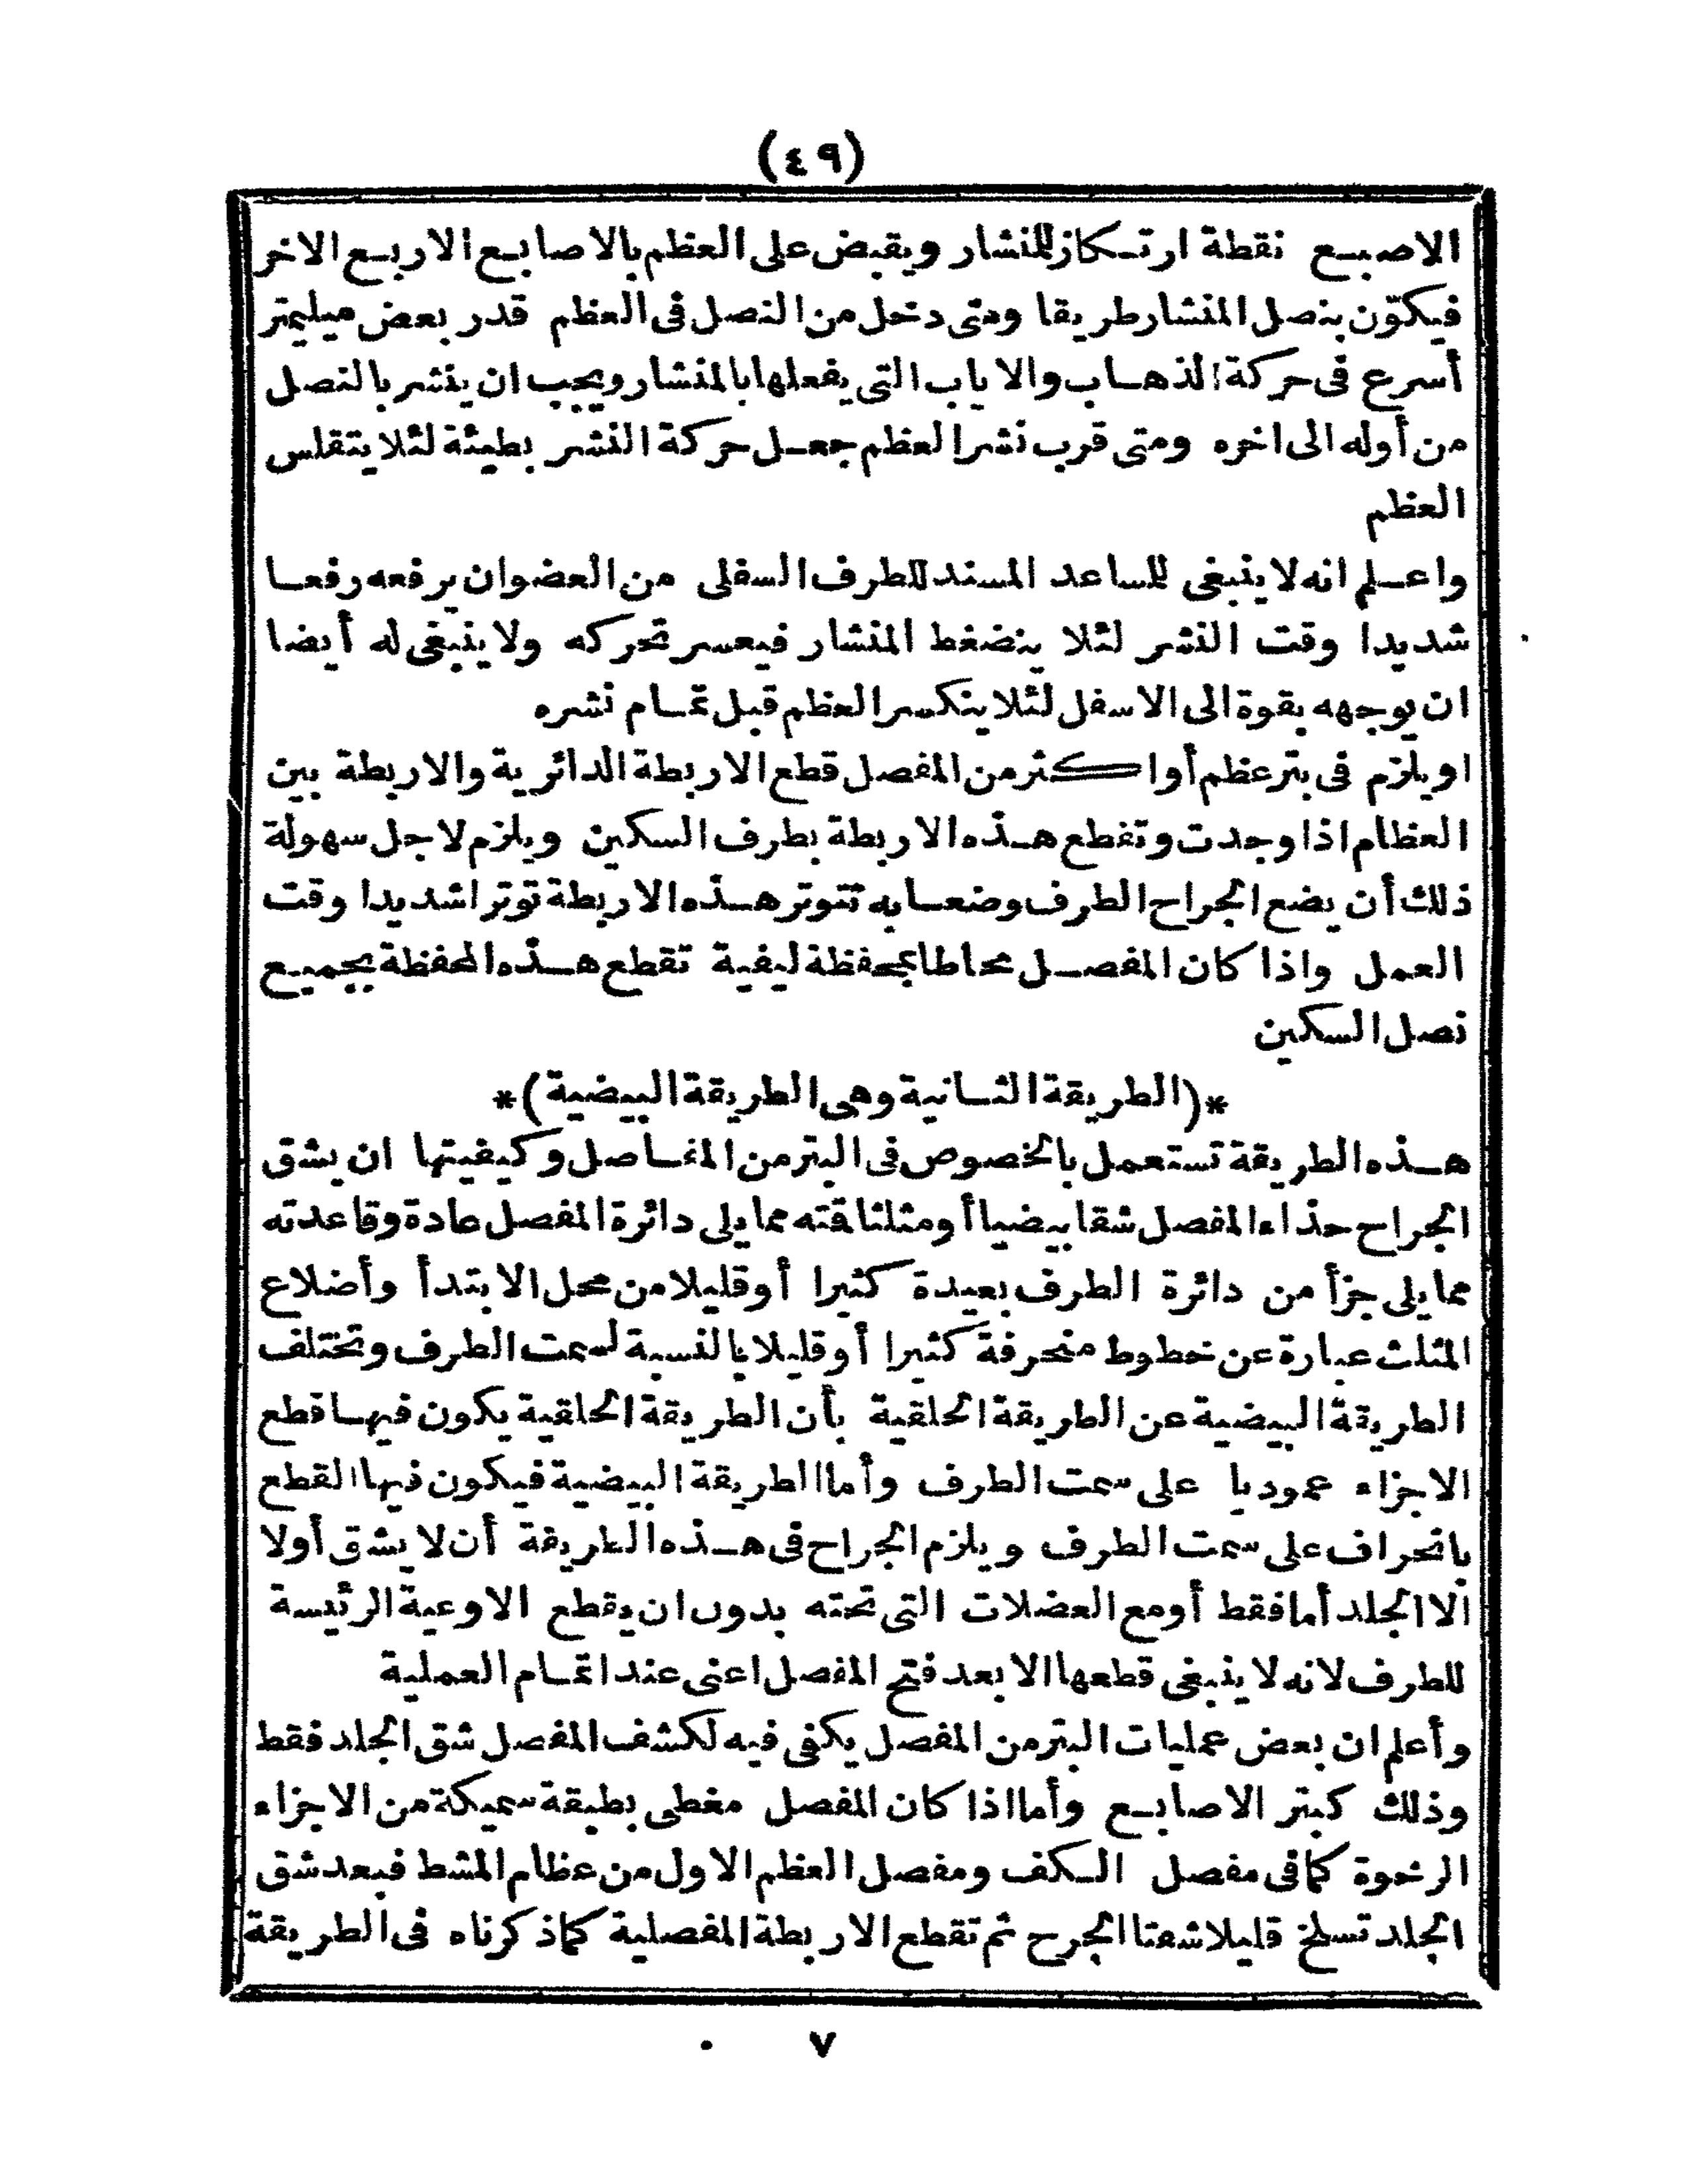 (٤٩)
الاصبع نقطة ارتكاز للمنشار ويقبض على العظم بالاصابع الاربع الاخر
فيكوّن بنصل المنشار طريقا ومتى دخل من النصل فى العظم قدر بعض ميليمتر
أسرع فى حركة الذهاب والاياب التى يفعلها بالمنشار ويجب ان ينشر بالنصل
من أوله الى اخره ومتى قرب نشر العظم جعل حركة النشر بطيئة لئلا يتفلس
العظم
واعلم انه لا ينبغى للساعد المسند للطرف السفلى من العضو ان يرفعه رفعا
شديدا وقت النشر لئلا ينضغط المنشار فيعسر تحركه ولا ينبغى له أيضا
ان يوجهه بقوة الى الاسفل لئلا ينكسر العظم قبل تمام نشره
او يلزم فى بتر عظم أو اكثر من المفصل قطع الاربطة الدائرية والاربطة بين
العظام اذا وجدت وتقطع هذه الاربطة بطرف السكين ويلزم لاجل سهولة
ذلك أن يضع الجراح الطرف وضعا به تتوتر هذه الاربطة توترا شديدا وقت
العمل واذا كان المفصل محاطا بمحفظة ليفية تقطع هذه المحفظة بجميع
نصل السكين
*(الطريقة الثانية وهى الطريقة البيضية)*
هذه الطريقة تستعمل بالخصوص فى البتر من المفاصل وكيفيتها ان يشق
الجراح حذاء المفصل شقا بيضيا أو مثلثا قته مما يلى دائرة المفصل عادة وقاعدته
مما يلى جزأ من دائرة الطرف بعيدة كثيرا أو قليلا من محل الابتدأ وأضلاع
المثلث عبارة عن خطوط منحرفة كثيرا أو قليلا بالنسبة لسمت الطرف وتختلف
الطريقة البيضية عن الطريقة الحلقية بأن الطريقة الحلقية يكون فيها قطع
الاجزاء عموديا على سمت الطرف وأما الطريقة البيضية فيكون فيها القطع
بانحراف على سمت الطرف ويلزم الجراح فى هذه الطريقة أن لا يشق أولا
الا الجلد أما فقط أو مع العضلات التى تحته بدون ان يقطع الاوعية الرئيسة
للطرف لانه لا ينبغى قطعها الا بعد فتح المفصل اعنى عند اتمام العملية
وأعلم ان بعض عمليات البتر من المفصل يكفى فيه لكشف المفصل شق الجلد فقط
وذلك كبتر الاصابع وأما اذا كان المفصل مغطى بطبقة سميكة من الاجزاء
الرخوة كما فى مفصل الكف ومفصل العظم الاول من عظام المشط فبعد شق
الجلد تسلخ قليلا شفتا الجرح ثم تقطع الاربطة المفصلية كما ذكرناه فى الطريقة
٧